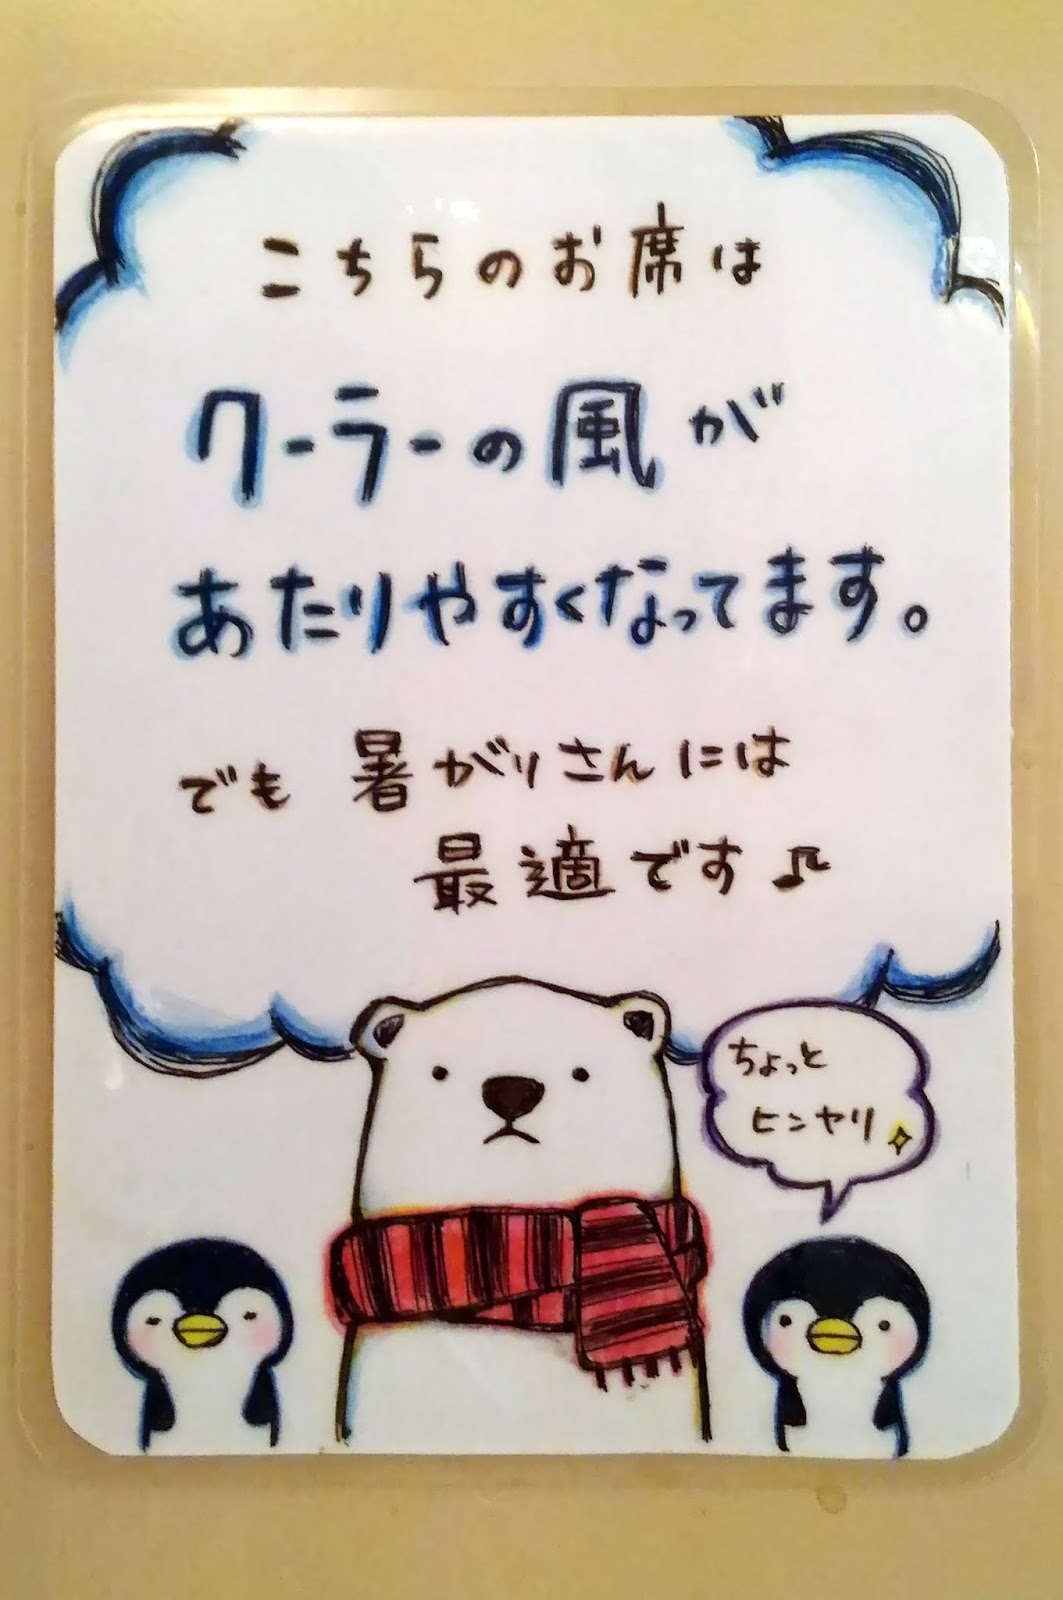 こちらのお席は
クーラーの風が
あたりやすくなってます。
でも 暑がりさんには
最適です♪
ちょっと
ヒンヤリ